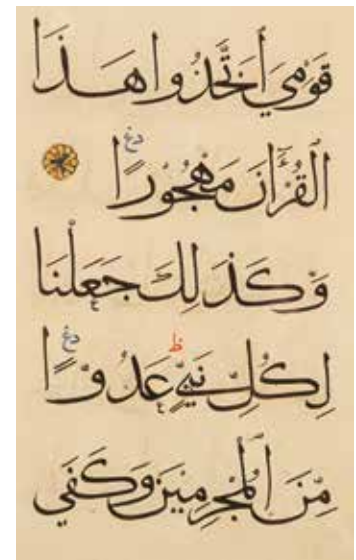 قَوْمِي اَتَّخَذُوا هَـٰذَا
اَلْقُرْءَانَ مَهْجُورًا
وَكَذَٰلِكَ جَعَلْنَا
لِكُلِّ نَبِيٍّ عَدُوًّا
مِّنَ اَلْمُجْرِمِينَ وَكَفَىٰ